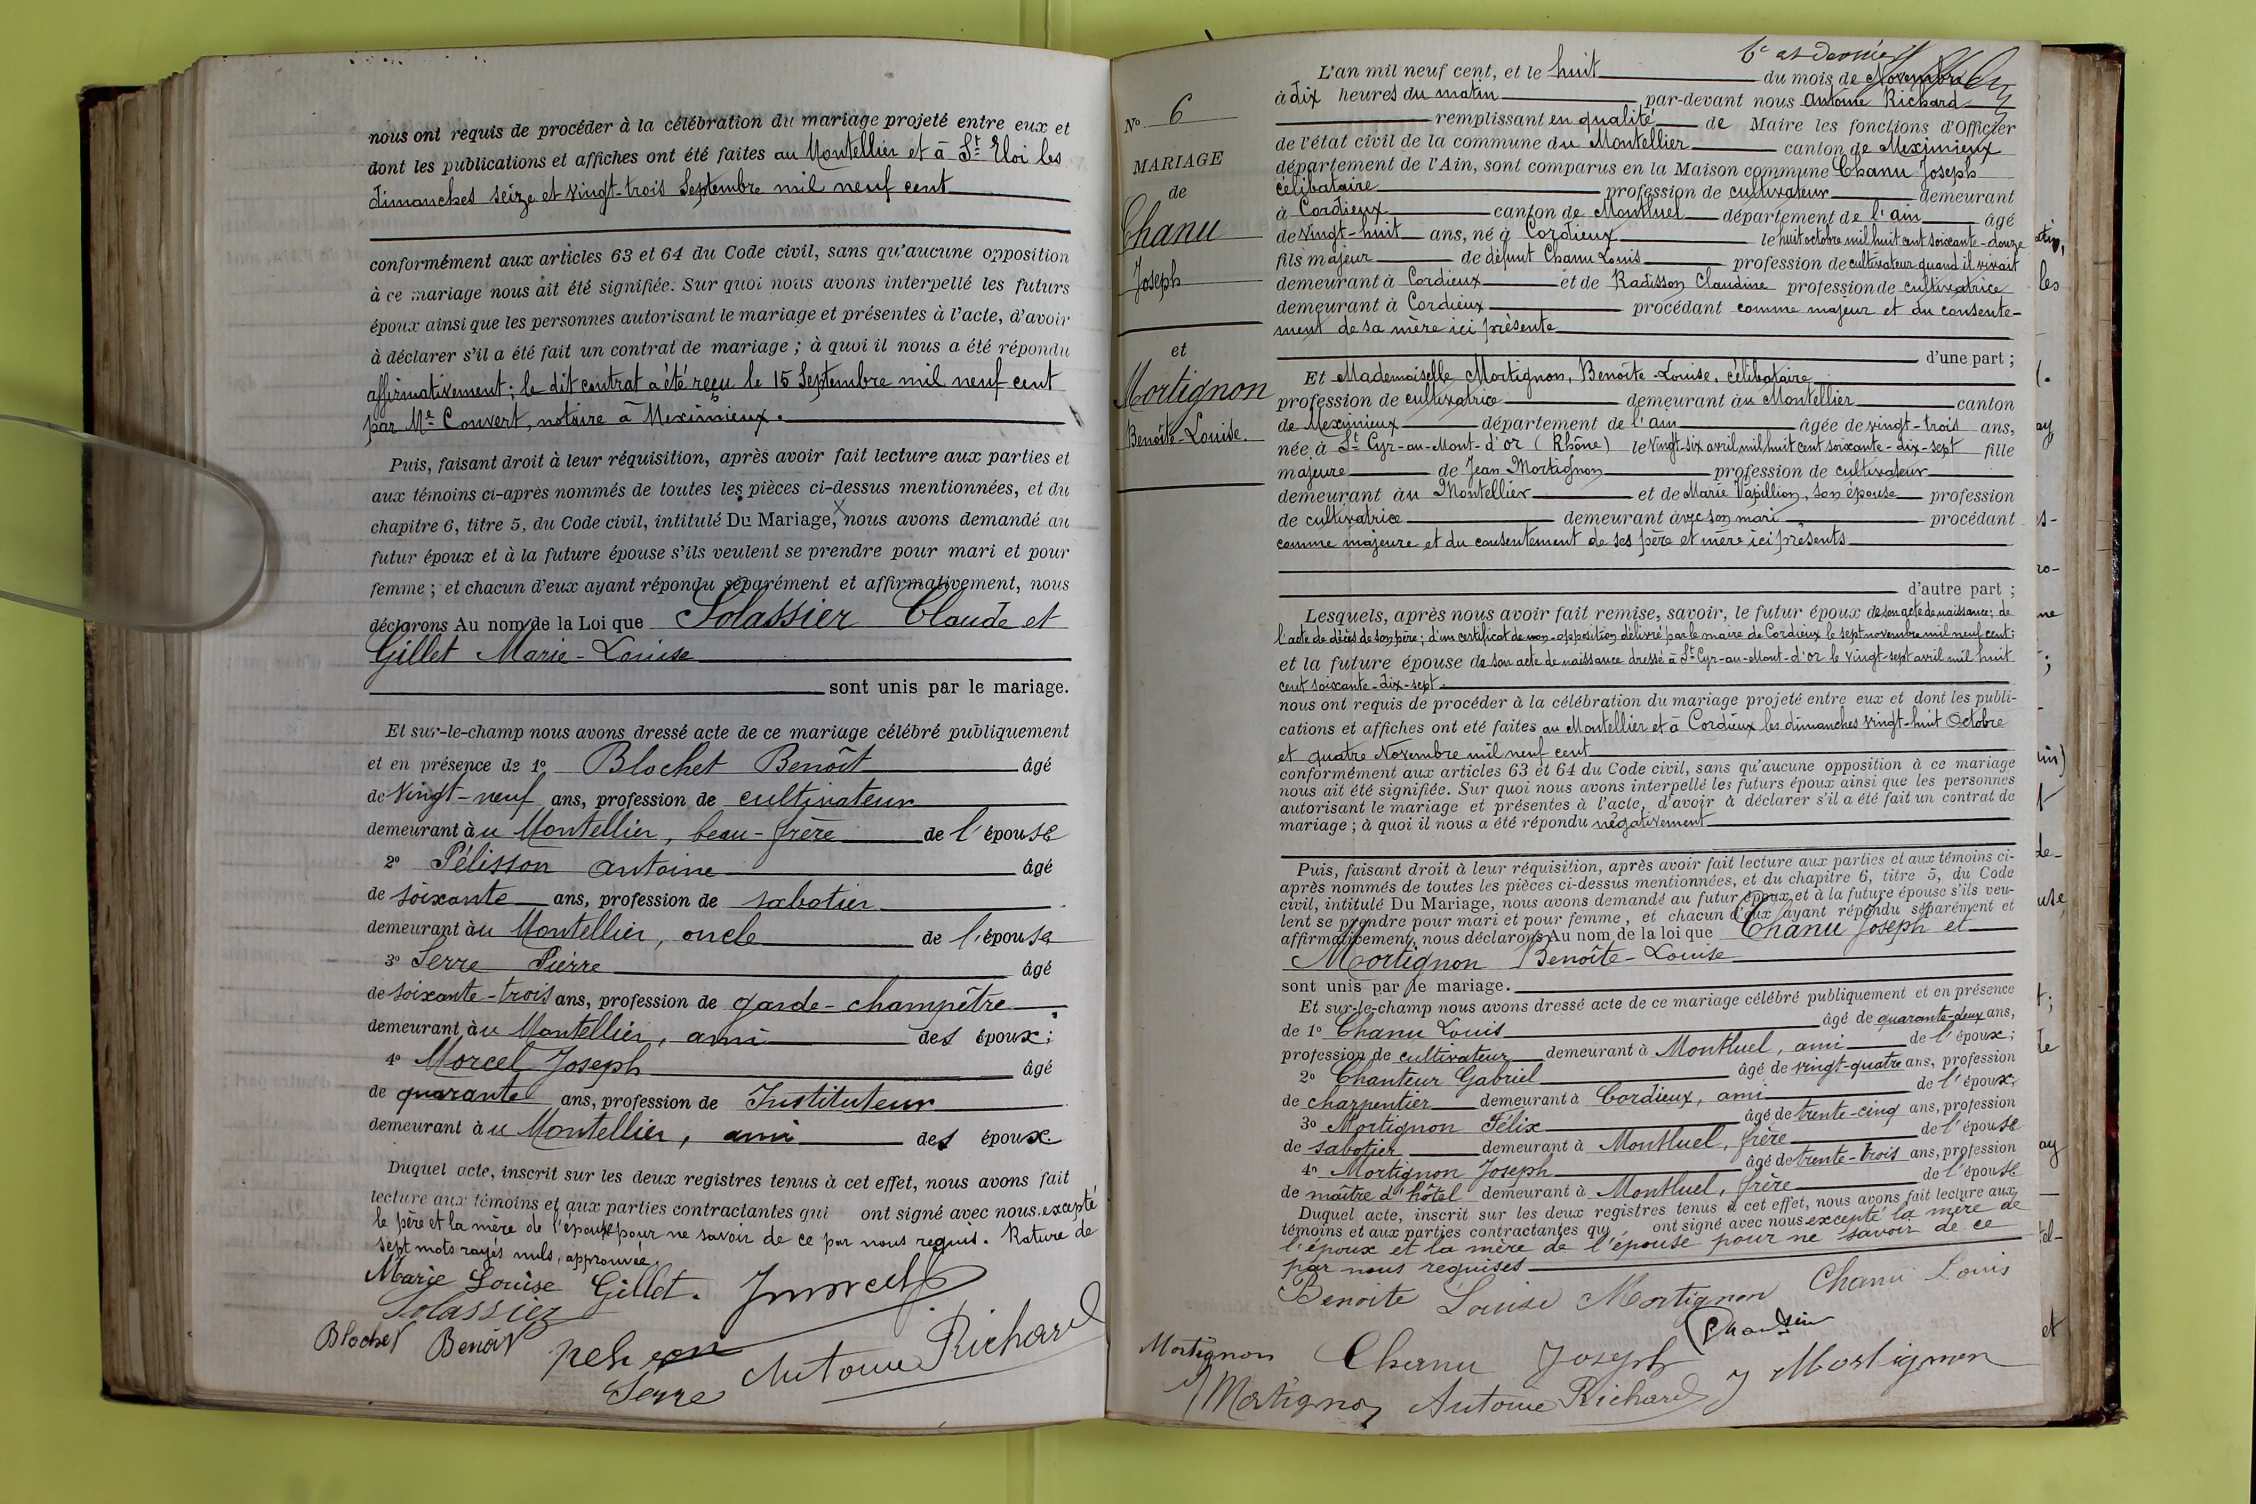 nous ont requis de procéder à la célébration du mariage projeté entre eux et
dont les publications et affiches ont été faites au Montellier et à St Eloi les
dimanches seize et vingt-trois Septembre mil neuf cent
conformément aux articles 63 et 64 du Code civil, sans qu'aucune opposition
à ce mariage nous ait été signifiée. Sur quoi nous avons interpellé les futurs
époux ainsi que les personnes autorisant le mariage et présentes à l'acte, d'avoir
à déclarer s'il a été fait un contrat de mariage ; à quoi il nous a été répondu
affirmativement; le dit contrat a été reçu le 15 Septembre mil neuf cent
par Me Convert, notaire à Meximieux.
Puis, faisant droit à leur réquisition, après avoir fait lecture aux parties et
aux témoins ci-après nommés de toutes les pièces ci-dessus mentionnées, et du
chapitre 6, titre 5, du Code civil, intitulé Du Mariage, nous avons demandé au
futur époux et à la future épouse s'ils veulent se prendre pour mari et pour
femme ; et chacun d'eux ayant répondu séparément et affirmativement, nous
déclarons Au nom de la Loi que Solassier Claude et
Gillet Marie-Louise
sont unis par le mariage.
Et sur-le-champ nous avons dressé acte de ce mariage célébré publiquement
et en présence de 1o Blochet Benoît âgé
de vingt-neuf ans, profession de cultivateur
demeurant au Montellier, beau-frère de l'épouse
2o Pélisson Antoine âgé
de soixante ans, profession de sabotier
demeurant au Montellier, oncle de l'épouse
3o Serre Pierre âgé
de soixante-trois ans, profession de garde-champêtre
demeurant au Montellier, ami des époux;
4o Morcel Joseph âgé
de quarante ans, profession de Instituteur
demeurant au Montellier, ami des époux.
Duquel acte, inscrit sur les deux registres tenus à cet effet, nous avons fait
lecture aux témoins et aux parties contractantes qui ont signé avec nous, excepté
le père et la mère de l'épouse pour ne savoir de ce par nous requis. Rature de
sept mots rayés nuls, approuvée.
Marie Louise Gillet. J morcel
Solassier
Blochet Benoit
Antoine Richard
Serre
6e et dernier
No 6
MARIAGE
de
Chanu
Joseph
et
Mortignon
Benoîte-Louise.
L'an mil neuf cent, et le huit du mois de Novembre
à dix heures du matin par-devant nous Antoine Richard
remplissant en qualité de Maire les fonctions d'Officier
de l'état civil de la commune du Montellier canton de Meximieux
département de l'Ain, sont comparus en la Maison commune Chanu Joseph
célibataire profession de cultivateur demeurant
à Cordieux canton de Montluel département de l'ain âgé
de vingt-huit ans, né à Cordieux le huit octobre mil huit cent soixante-douze
fils majeur de défunt Chanu Louis profession de cultivateur quand il vivait
demeurant à Cordieux et de Radisson Claudine profession de cultivatrice
demeurant à Cordieux procédant comme majeur et du consente-
ment de sa mère ici présente
d'une part ;
Et Mademoiselle Mortignon, Benoîte-Louise, célibataire
profession de cultivatrice demeurant au Montellier canton
de Meximieux département de l'ain âgée de vingt-trois ans,
née à St Cyr-au-Mont-d'or (Rhône) le vingt-six avril mil huit cent soixante-dix-sept fille
majeure de Jean Mortignon profession de cultivateur
demeurant au Montellier et de Marie Vapillion, son épouse profession
de cultivatrice demeurant avec son mari procédant
comme majeure et du consentement de ses père et mère ici présents
d'autre part ;
Lesquels, après nous avoir fait remise, savoir, le futur époux de son acte de naissance; de
l'acte de décès de son père; d'un certificat de non-opposition délivré par le maire de Cordieux le sept novembre mil neuf cent;
et la future épouse de son acte de naissance dressé à St Cyr-au-Mont-d'or le vingt-sept avril mil huit
cent soixante-dix-sept.
nous ont requis de procéder à la célébration du mariage projeté entre eux et dont les publi-
cations et affiches ont été faites au Montellier et à Cordieux les dimanches vingt-huit Octobre
et quatre Novembre mil neuf cent
conformément aux articles 63 et 64 du Code civil, sans qu'aucune opposition à ce mariage
nous ait été signifiée. Sur quoi nous avons interpellé les futurs époux ainsi que les personnes
autorisant le mariage et présentes à l'acte, d'avoir à déclarer s'il a été fait un contrat de
mariage ; à quoi il nous a été répondu négativement
Puis, faisant droit à leur réquisition, après avoir fait lecture aux parties et aux témoins ci-
après nommés de toutes les pièces ci-dessus mentionnées, et du chapitre 6, titre 5, du Code
civil, intitulé Du Mariage, nous avons demandé au futur époux et à la future épouse s'ils veu-
lent se prendre pour mari et pour femme, et chacun d'eux ayant répondu séparément et
affirmativement, nous déclarons Au nom de la loi que Chanu Joseph et
Mortignon Benoîte-Louise
sont unis par le mariage.
Et sur-le-champ nous avons dressé acte de ce mariage célébré publiquement et en présence
de 1o Chanu Louis âgé de quarante-deux ans,
profession de cultivateur demeurant à Montluel, ami de l'époux;
2o Chanteur Gabriel âgé de vingt-quatre ans, profession
de charpentier demeurant à Cordieux, ami de l'époux;
3o Mortignon Félix âgé de trente-cinq ans, profession
de sabotier demeurant à Montluel, frère de l'épouse
4o Mortignon Joseph âgé de trente-trois ans, profession
de maître d'hôtel demeurant à Montluel, frère de l'épouse
Duquel acte, inscrit sur les deux registres tenus à cet effet, nous avons fait lecture aux
témoins et aux parties contractantes qui ont signé avec nous excepté la mère de
l'époux et la mère de l'épouse pour ne savoir de ce
par nous requises
Benoite Louise Mortignon Chanu Louis
Mortignon Chanu Joseph J Mortignon
Mortignon Antoine Richard